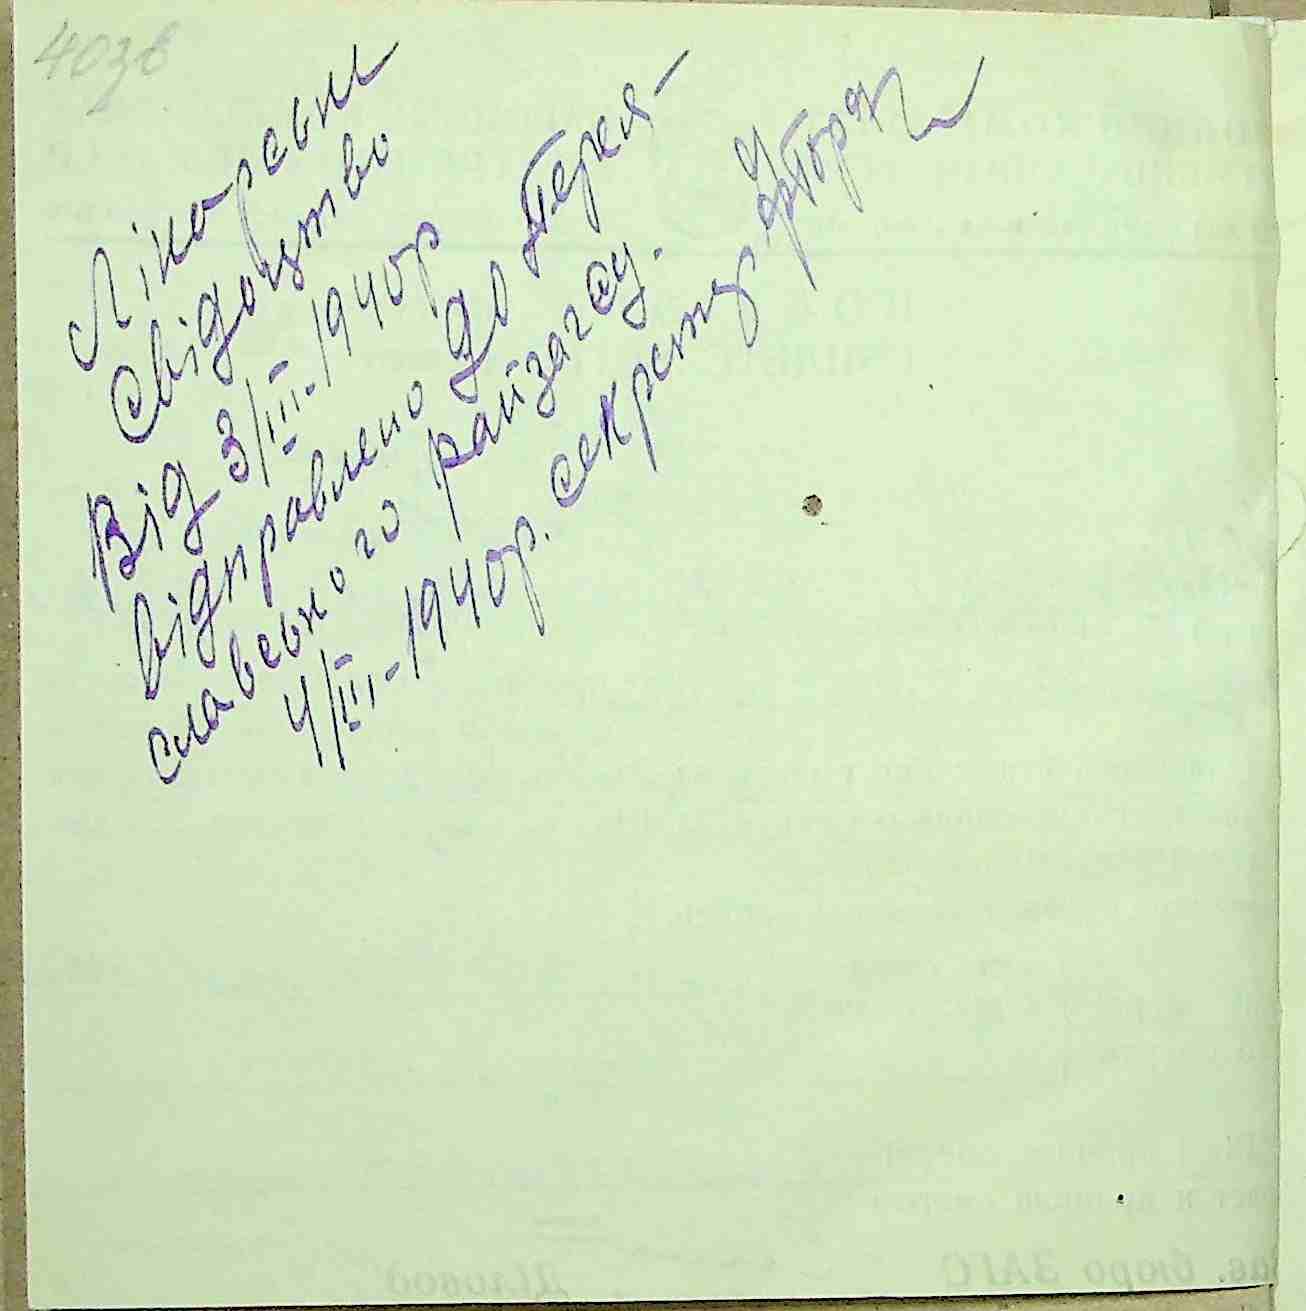 403в
Лікарське
Свідоцтво
Від 3/III-1940р
відправлено до Перея-
славського райзагсу.
4/III-1940р. секретар